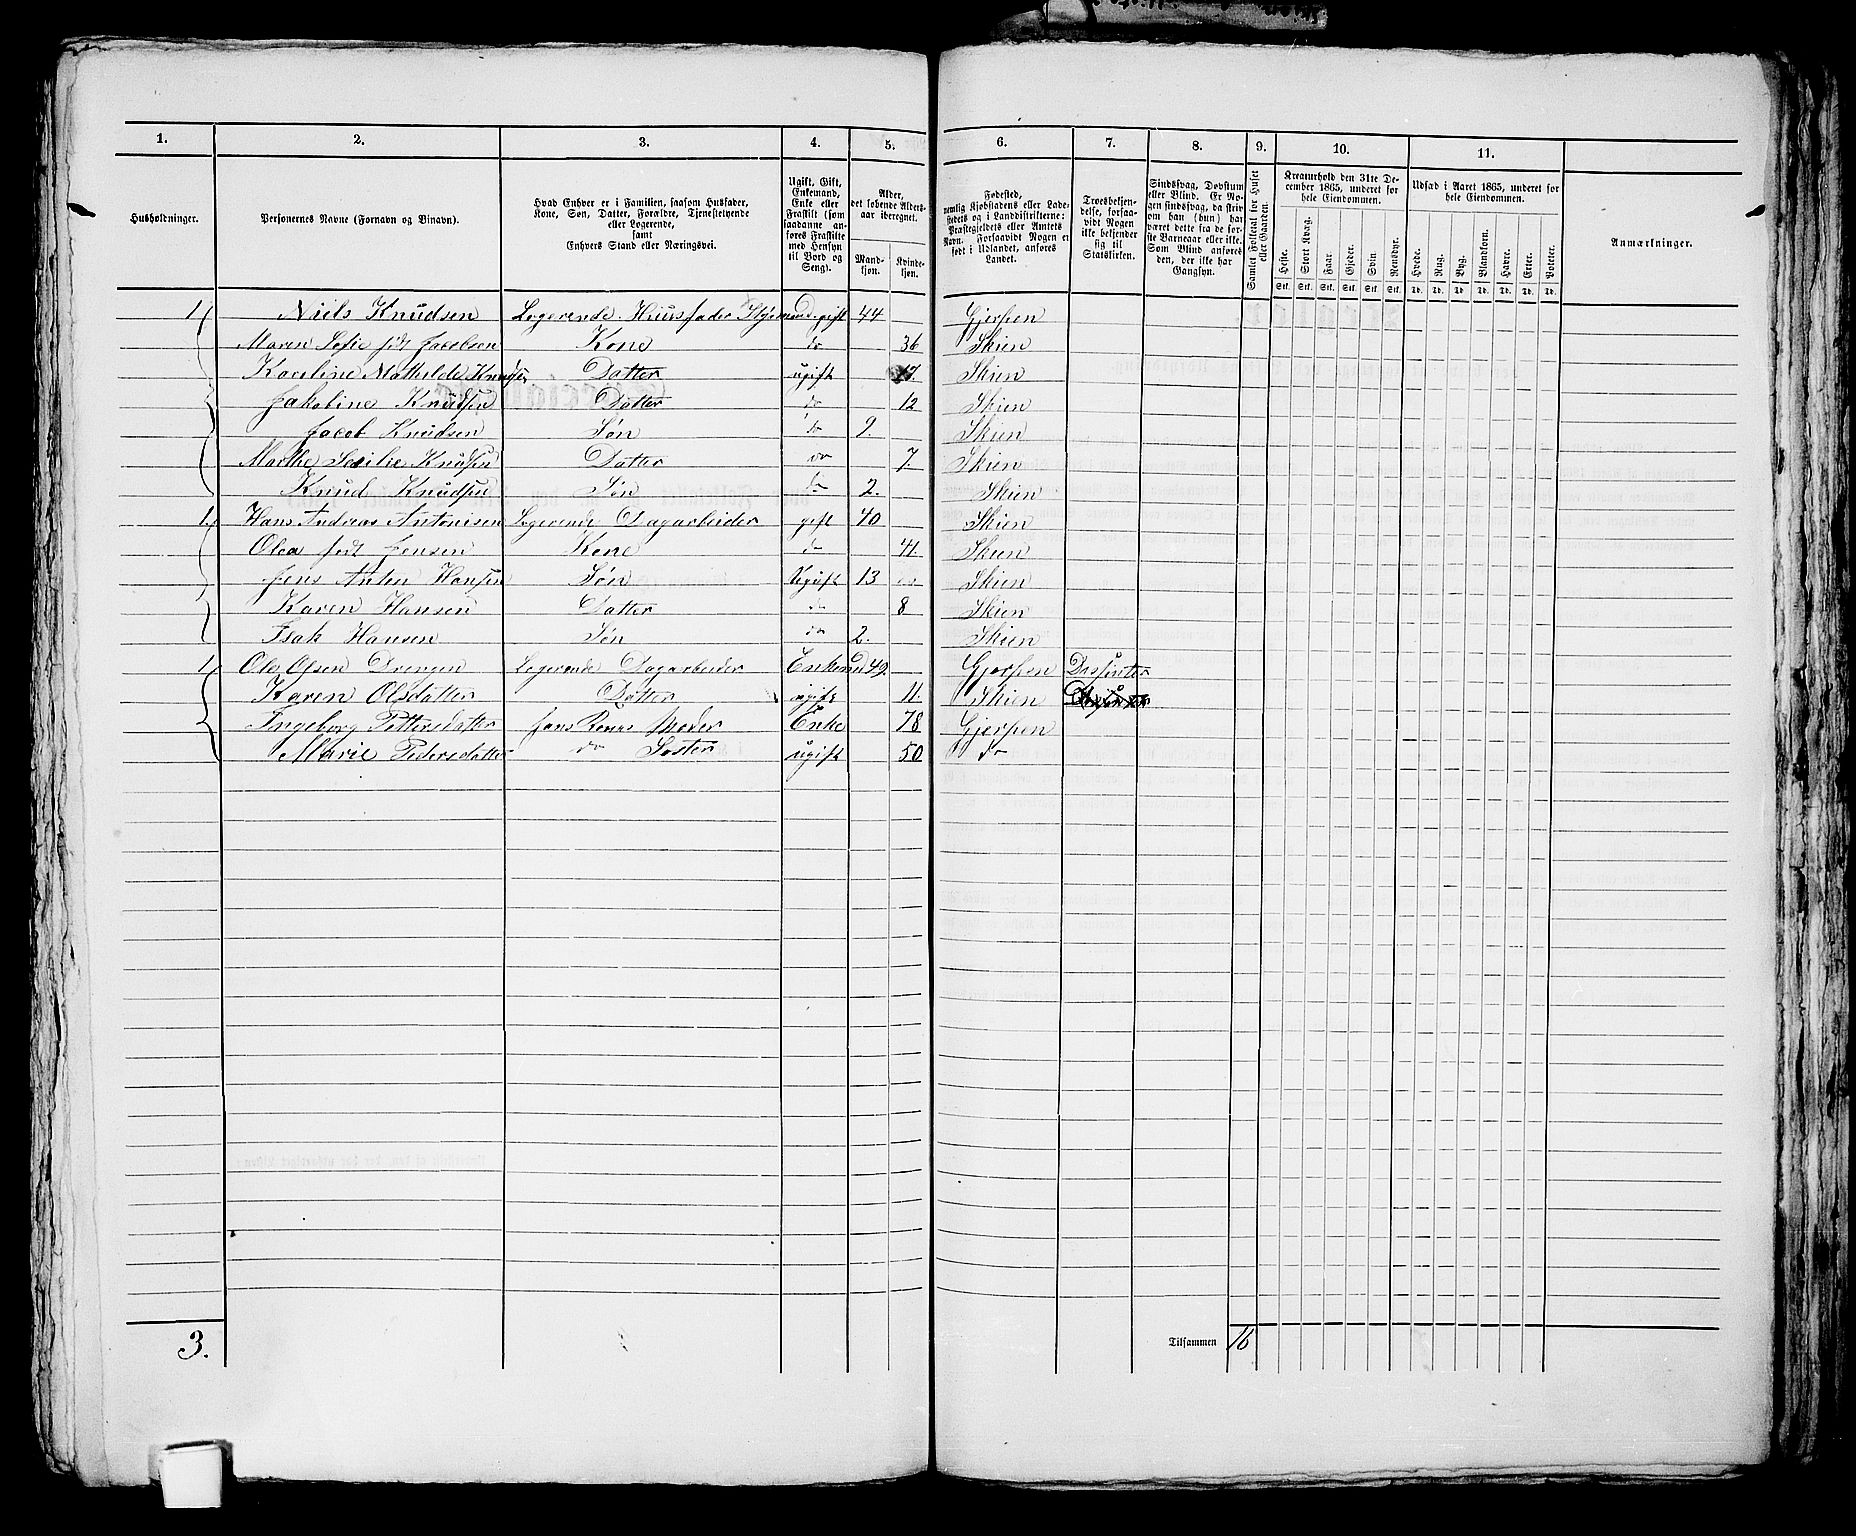 1. 2. 3. 4. 5. 6. 7. 8. 9. 10. 11.
Husholdninger.
Personernes Navne (Fornavn og Binavn).
Hvad Enhver er i Familien, saasom Husfader,
Kone, Søn, Datter, Forældre, Tjenestetyende
eller Logerende,
samt
Enhvers Stand eller Næringsvei.
Ugift, Gift,
Enkemand,
Enke eller
Fraskilt (som
saadanne an-
føres Fraskilte
med Hensyn
til Bord og
Seng).
Alder,
det løbende Alders-
aar iberegnet.
Mand-
kjøn.
Kvinde-
kjøn.
Fødested,
nemlig Kjøbstadens eller Lade-
stedets og i Landdistrikterne:
Præstegjeldets eller Amtets
Navn. Forsaavidt Nogen er
født i Udlandet, anføres
Landet.
Troesbekjen-
delse, forsaa-
vidt Nogen
ikke bekjender
sig til
Statskirken.
Sindssvag, Døvstum
eller Blind. Er No-
gen sindssvag, da skriv
om han (hun) har
været dette fra de før-
ste Barneaar eller ikke.
Som Blind anføres
den, der ikke har
Gangsyn.
Samlet Folketal for Huset
eller Gaarden.
Kreaturhold den 31te De-
cember 1865, underet for
hele Eiendommen.
Heste. Stort Kvæg. Faar. Gjeder. Svin. Rensdyr.
Stk. Stk. Stk. Stk. Stk. Stk.
Udsæd i Aaret 1865, underet for
hele Eiendommen.
Hvede. Rug. Byg. Blandkorn. Havre. Erter. Poteter.
Td. Td. Td. Td. Td. Td. Td.
Anmærkninger.
1 Niels Knudsen Logerende. Huusfader Styrmand gift 44 Gjerpen
Maren Sofie født Jacobsen Kone do 36 Skien
Karoline Mathilde Knudsen Datter ugift 17. Skien
Jakobine Knudsen Datter do 12 Skien
Jacob Knudsen Søn do 9. Skien
Marthe Secilie Knudsen Datter do 7. Skien
Knud Knudsen Søn do 2. Skien
1. Hans Andreas Antonisen Logerende Dagarbeider gift 40 Skien
Olea født Jensen Kone do 41. Skien
Jens Anton Hansen Søn Ugift 13 Skien
Karen Hansen Datter do 8 Skien
Isak Hansen Søn do 2. Skien
1 Ole Olsen Drengen Logerende Dagarbeider Enkemd 49. Gjerpen Dissenter
Karen Olsdatter Datter ugift 11. Skien
Ingeborg Pettersdatter hans Kones Moder Enke 78 Gjerpen
Marie Pedersdatter do Søster ugift 50 do
3.
Tilsammen 16